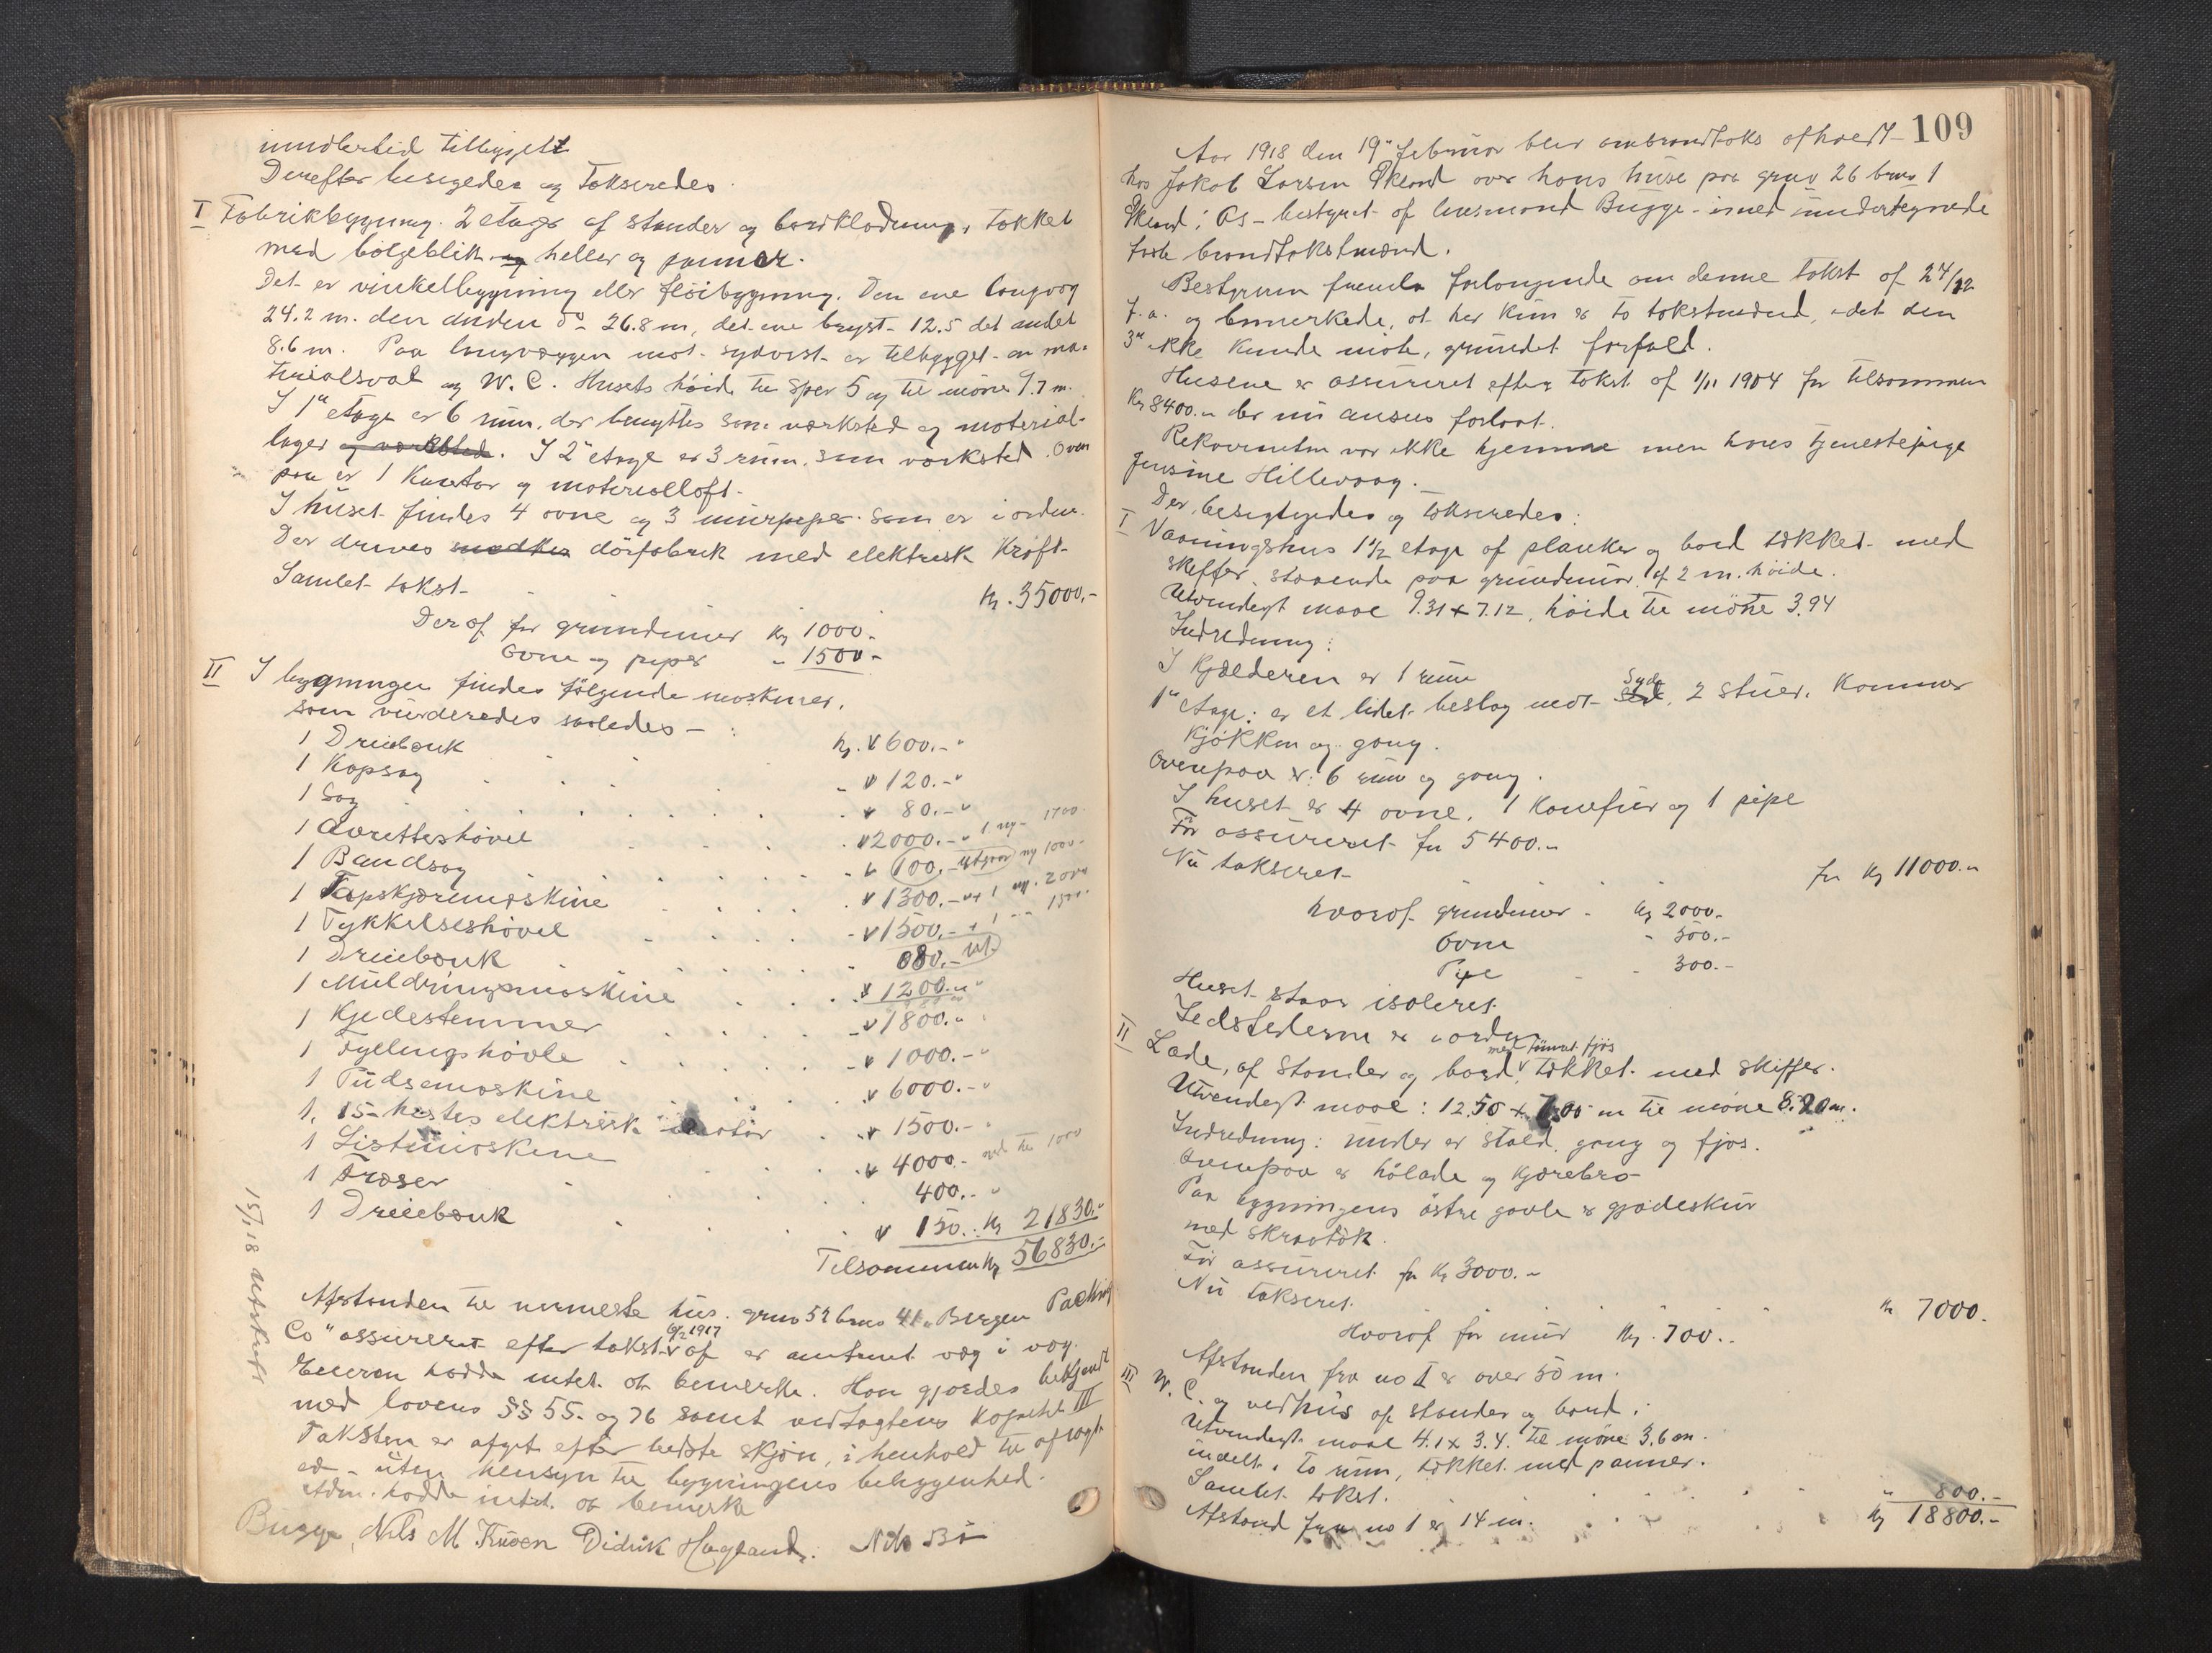 imidlertid tilbygget
Derefter besigedes og Takseredes.
I Fabrikbygning. 2 etager af stender og bordklædning, tækket
med bølgeblik og heller og panner.
Det er vinkelbygning eller fløibygning. Den ene langvæg
24.2 m. den anden do 26.8 m, det ene bryst 12.5 det andet
8.6 m. Paa langvæggen mot sydvest er tilbygget en ma-
terialsval og W.C. Husets høide til sper 5 og til møne 9.7 m.
I 1ste etage er 6 rum, der benyttes som verksted og material-
lager og verksted. I 2den etage er 3 rum som verksted. Oven
paa er 1 Kontor og materialloft.
I huset findes 4 ovne og 3 murpiper som er i orden.
Der drives dørfabrik med elektrisk Kraft
Samlet takst Kr. 35000,-
Deraf for grundmur Kr 1000.-
Ovne og piper " 1500-
II I bygningen findes følgende maskiner,
som vurderedes saaledes - :
1 Dreiebænk Kr. 600.-
1 Kapsag 120.-
1 Sag 80.-
1 Avretteshøvel 2000.- 1 ny 1700.
1 Bandsag 100.- utgaar ny 1000-
1 Tapskjæremaskine 1300.- 1 ny. 2000
1 Tykkelseshøvel 1500.- 1
1 Dreiebænk 080.- ut.
1 Muldringsmaskine 1200.-
1 Kjedestemmer 1800.-
1 Fyllingshøvle 1000.-
1 Pudsemaskine 6000.-
1, 15-hestes elektrisk motor 1500.-
1 Listmaskine 4000.- 1000
1 Fræser 400.-
1 Dreiebænk 150. Kr 21830.-
Tilsammen Kr 56830.-
15/1 18 utskrift
Afstanden til nærmeste hus. gnr 52 bnr 41 "Bergen Packing
Co" assureret efter takst af 6/2 1917 er omtrent væg i væg.
Eieren hadde intet at bemerke. Han gjordes bekjendt
med lovens §§ 55. og 76 samt vedtægtens Kapitel III
Taksten er afgit efter bedste skjøn, i henhold til aflagt
ed - uten hensyn til bygningens beliggenhed.
hadde intet at bemerke
Bugge Nils M. Kuven Didrik Haugland. Nils Bø
109
Aar 1918 den 19de februar blev ombrandtakst afholdt
hos Jakob Larsen Økland over hans huse paa gnr 26 bnr 1
Økland i Os - bestyret af lensmand Bugge med undertegnede
faste brandtakstmænd.
Bestyreren fremla forlangende om denne takst af 27/12
f.a. og bemerkede, at her kun er to takstmænd, idet den
3die ikke kunde møte, grundet forfald.
Husene er assureret efter takst af 1/11 1904 for tilsammen
Kr 8400.- der nu ansees forlavt.
Rekvirenten var ikke hjemme men hans tjenestepige
Jensine Hillevaag.
Der besigtigedes og takseredes:
I Vaaningshus 1 1/2 etage af planker og bord tækket med
skiffer, staaende paa grundmur af 2 m. høide.
Utvendigt maal 9.31 x 7.12, høide til møne 3.94
Indredning:
I Kjælderen er 1 rum
1ste etage: er et lidet beslag mot Syd, 2 stuer, Kammer
Kjøkken og gang.
Ovenpaa er: 6 rum og gang.
I huset er 4 ovne, 1 komfur og 1 pipe
Før assureret for 5400.-
Nu takseret for Kr 11000.-
hvoraf grundmur - Kr 2000.-
Ovne " 500.-
Pipe - 300.-
Huset staar isoleret
Ildstederne er i orden
II Lade, af stender og bord med tømret fjøs tækket med skiffer.
Utvendigt maal: 12.50 x 7.00 m til møne 8.20 m.
Indredning: under er stald, gang og fjøs.
Ovenpaa er hølade og kjørebro
Paa bygningens østre gavle er gjødeskur
med skraatak.
Før assureret for Kr 3000.-
Nu takseret Kr 7000.
Hvoraf for mur Kr. 700..
Afstanden fra no I er over 50 m.
III W. C. og vedhus af stender og bord.
Utvendigt maal 4.1 x 3.4. til møne 3.6 m.
indelt i to rum, tækket med panner.
Samlet takst. " 800.-
Afstand fra no 1 er 14 m. Kr 18800.-